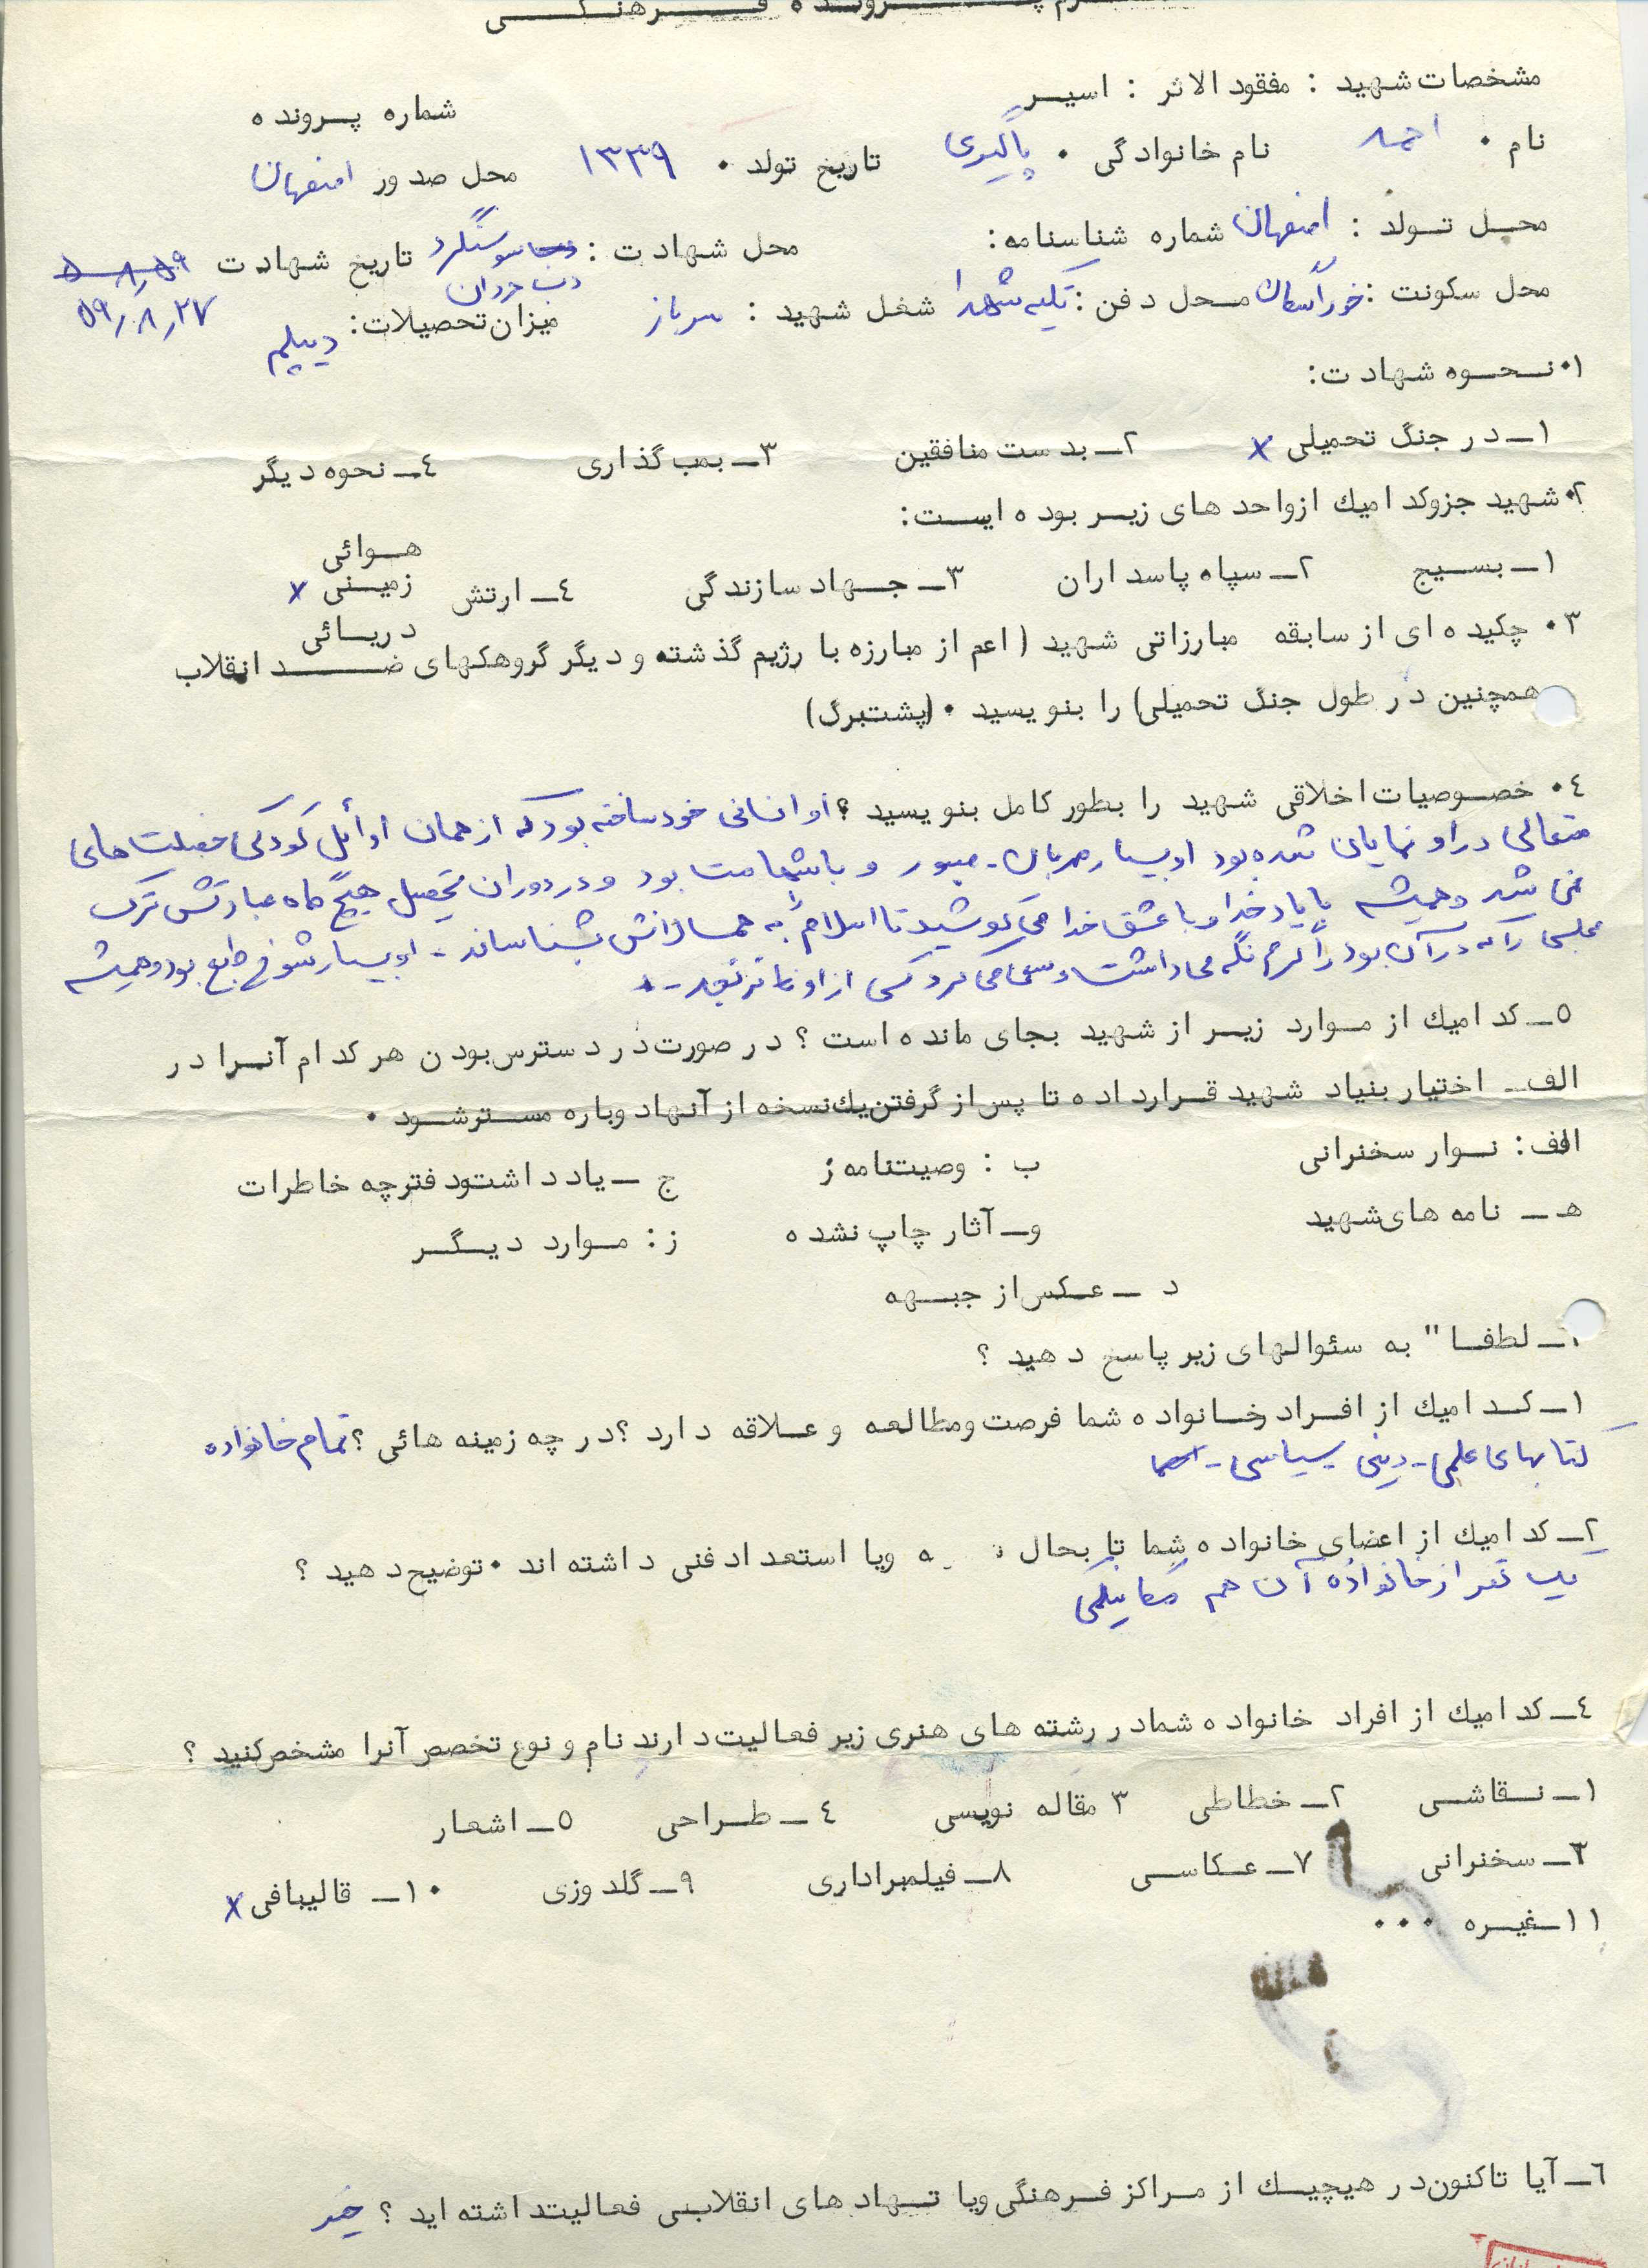 فرم پرونده فرهنگی
مشخصات شهید : مفقود الاثر : اسیر
شماره پرونده
نام . احمد نام خانوادگی . پاگیری تاریخ تولد . ۱۳۳۹ محل صدور اصفهان
محل تولد : اصفهان شماره شناسنامه: محل شهادت : سوسنگرد دب حردان تاریخ شهادت ۵۹/۸/۲۷
محل سکونت : خوراسگان محل دفن : تکیه شهدا شغل شهید : سرباز میزان تحصیلات: دیپلم
۱. نحوه شهادت:
۱ـ در جنگ تحمیلی x ۲ـ بدست منافقین ۳ـ بمب گذاری ٤ـ نحوه دیگر
۲. شهید جزو کدامیك از واحدهای زیر بوده است:
۱ـ بسیج ۲ـ سپاه پاسداران ۳ـ جهاد سازندگی ٤ـ ارتش هوائی زمینی x دریائی
۳. چکیده ای از سابقه مبارزاتی شهید (اعم از مبارزه با رژیم گذشته و دیگر گروهکهای ضد انقلاب
همچنین در طول جنگ تحمیلی) را بنویسید . (پشت برگ)
٤. خصوصیات اخلاقی شهید را بطور کامل بنویسید ؟ او انسانی خود ساخته بود که از همان اوائل کودکی خصلت های
متعالی در او نمایان شده بود او بسیار مهربان - صبور و با شهامت بود و در دوران تحصیل هیچ گاه عبادتش ترک
نمی شد و همیشه با یاد خدا و با عشق خدا می کوشید تا اسلام را به همسالانش بشناساند - او بسیار شوخ طبع بود و همیشه
مجلسی را که در آن بود را گرم نگه می داشت و سعی می کرد کسی از او ناراحت نشود -
٥ـ کدامیك از موارد زیر از شهید بجای مانده است ؟ در صورت در دسترس بودن هر کدام آنرا در
الف ـ اختیار بنیاد شهید قرار داده تا پس از گرفتن یك نسخه از آنها دوباره مسترد شود .
الف : نوار سخنرانی ب : وصیتنامه ج ـ یادداشت و دفترچه خاطرات
هـ ـ نامه های شهید و ـ آثار چاپ نشده ز : موارد دیگر
د ـ عکس از جبهه
ـ لطفا" به سئوالهای زیر پاسخ دهید ؟
۱ـ کدامیك از افراد خانواده شما فرصت و مطالعه و علاقه دارد ؟ در چه زمینه هائی ؟ تمام خانواده
کتابهای علمی - دینی سیاسی -
۲ـ کدامیك از اعضای خانواده شما تا بحال ه ویا استعداد فنی داشته اند . توضیح دهید ؟
یک نفر از خانواده آن هم مکانیکی
٤ـ کدامیك از افراد خانواده شما در رشته های هنری زیر فعالیت دارند نام و نوع تخصص آنرا مشخص کنید ؟
۱ـ نقاشی ۲ـ خطاطی ۳ مقاله نویسی ٤ـ طراحی ٥ـ اشعار
٦ـ سخنرانی ۷ـ عکاسی ۸ـ فیلمبراداری ۹ـ گلدوزی ۱۰ـ قالیبافی x
۱۱ـ غیره ...
٦ـ آیا تاکنون در هیچیك از مراکز فرهنگی ویا نهادهای انقلابی فعالیت داشته اید ؟ خیر